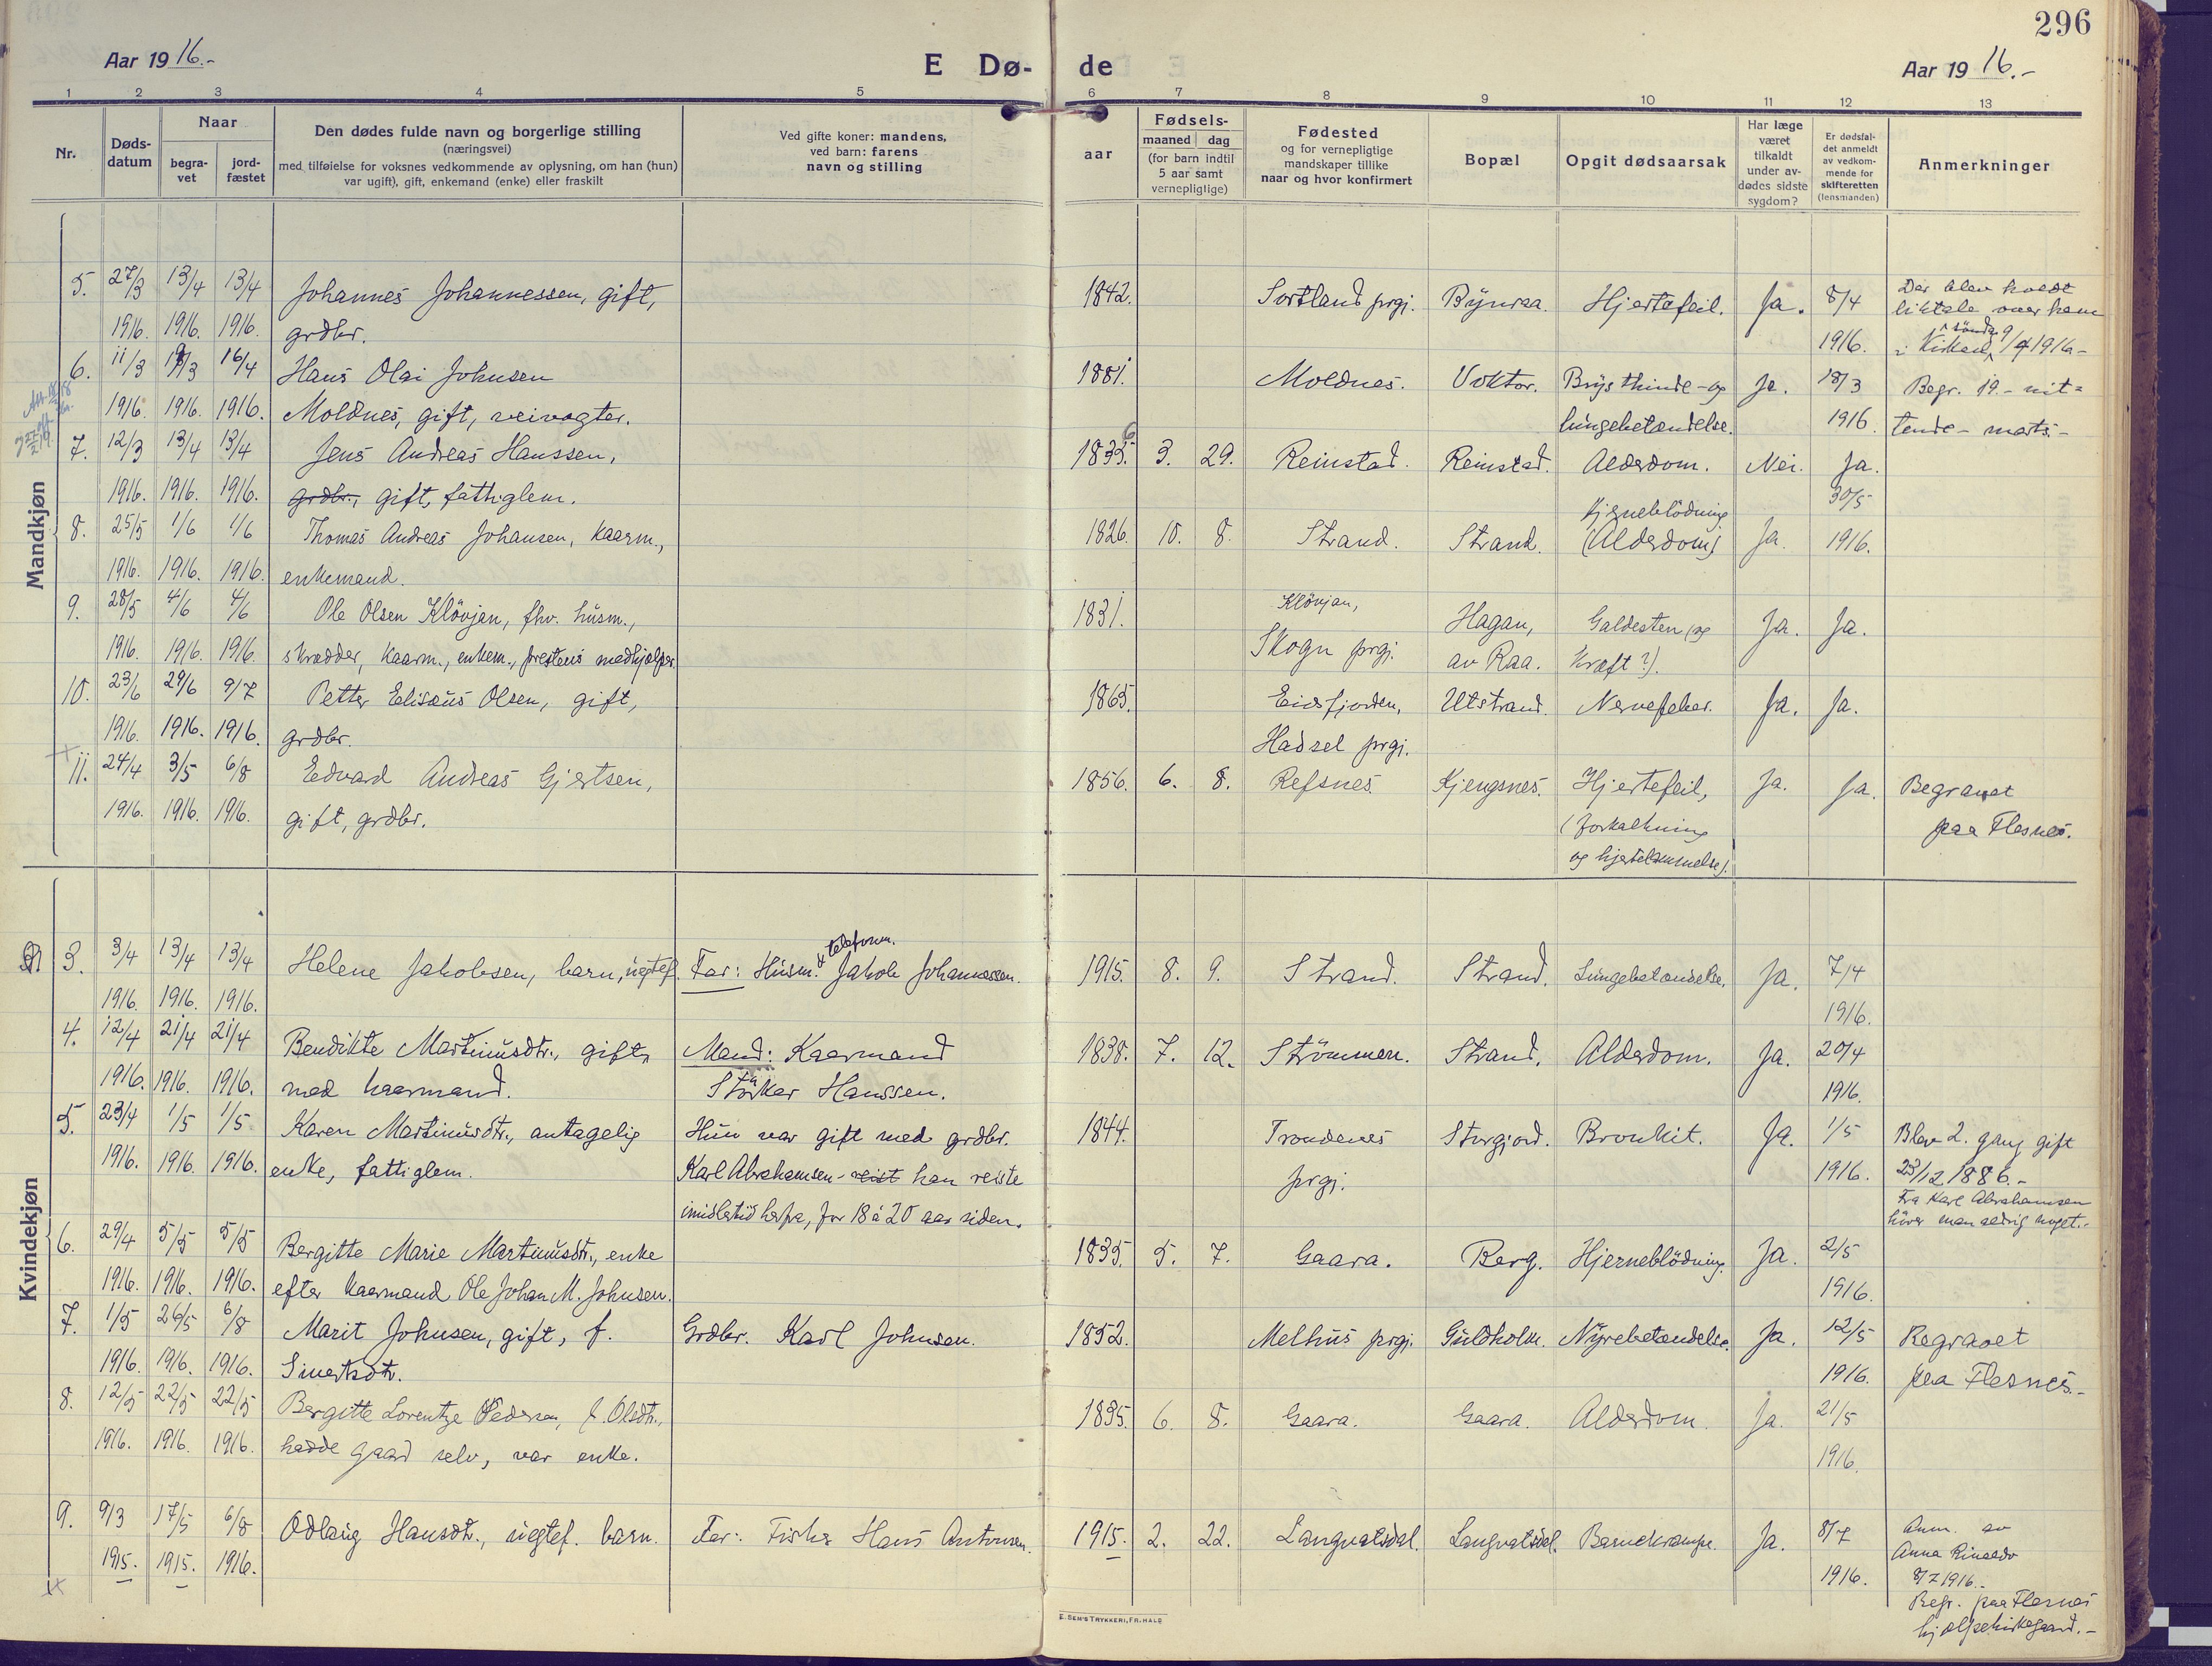 296
Aar 19 16.-
E Dø-
de
Aar 19 16.-
1 2 3 4 5 6 7 8 9 10 11 12 13
Nr.
Døds-
datum
Naar
begra-
vet
jord-
fæstet
Den dødes fulde navn og borgerlige stilling
(næringsvei)
med tilføielse for voksnes vedkommende av oplysning, om han (hun)
var ugift), gift, enkemand (enke) eller fraskilt
Ved gifte koner: mandens,
ved barn: farens
navn og stilling
Fødsels-
aar
maaned dag
(for barn indtil
5 aar samt
vernepligtige)
Fødested
og for vernepligtige
mandskaper tillike
naar og hvor konfirmert
Bopæl
Opgit dødsaarsak
Har læge
været
tilkaldt
under av-
dødes sidste
sygdom?
Er dødsfal-
det anmeldt
av vedkom-
mende for
skifteretten
(lensmanden)
Anmerkninger
Mandkjøn
5. 27/3 13/4 13/4 Johannes Johannessen, gift, 1842. Sortland prgj. Bÿnraa. Hjertefeil. Ja. 8/4 Der blev holdt
1916. 1916. 1916. grdbr. 1916. liktale over ham
i Kirken søndag 9/4 1916-
6. 11/3 19/3 16/4 Hans Olai Johnsen 1881. Moldnes. Voktor. Brÿsthinde- og Ja. 18/3 Begr. 19.- nit=
1916. 1916. 1916. Moldnes, gift, veivogter. lungebetændelse. 1916. tende- marts.-
7. 12/3 13/4 13/4 Jens Andreas Hanssen, 1835. 6 3. 29. Reinstad. Reinstad. Alderdom. Nei. Ja.
1916. 1916. 1916. grdbr., gift, fattiglem.
8. 25/5 1/6 1/6 Thomas Andreas Johansen, kaarm., 1826. 10. 8. Strand. Strand. Hjerneblödning (Alderdom) Ja. 30/5 1916.
1916. 1916. 1916. enkemand.
9. 28/5 4/6 4/6 Ole Olsen Klövjan, fhv. husm., 1831. Klövjan, Hagan, Galdesten (og Ja. Ja.
1916. 1916. 1916. skrædder, kaarm., enkem., prestens medhjælper. Skogn prgj. av Raa. kræft?).
10. 23/6 29/6 9/7 Petter Elisæus Olsen, gift, 1865. Eidsfjorden, Utstrand. Nervefeber. Ja. Ja.
1916. 1916. 1916. grdbr. Hadsel prgj.
11. 24/4 3/5 6/8 Edvard Andreas Gjertsen, 1856. 6. 8. Refsnes. Kjengsnes. Hjertefeil, Ja. Ja. Begravet
1916. 1916. 1916. gift, grdbr. (forkalkning paa Flesnes.
og hjertelammelse).
Kvindekjøn
3. 3/4 13/4 13/4 Helene Jakobsen, barn, uegtef. Far: Husm. & telefonm. Jakob Johannessen. 1915. 8. 9. Strand. Strand. Lungebetændelse. Ja. 7/4
1916. 1916. 1916. 1916.
4. 12/4 21/4 21/4 Bendikte Martinusdtr., gift Mand: Kaarmand 1838. 7. 12. Strömmen. Strand. Alderdom. Ja. 20/4
1916. 1916. 1916. med kaarmand. Störker Hanssen. 1916.
5. 23/4 1/5 1/5 Karen Martinusdtr., antagelig Hun var gift med grdbr. 1844. Trondenes Storjord. Bronkit. Ja. 1/5 Blev 2. gang gift
1916. 1916. 1916. enke, fattiglem. Karl Abrahamsen - reist han reiste prgj. 1916. 23/12 1886.-
imidlertid herfra, for 18 à 20 aar siden. Fra Karl Abrahamsen
hörer man aldrig noget.-
6. 29/4 5/5 5/5 Bergitte Marie Martinusdtr., enke 1835. 5. 7. Gaara. Berg. Hjerneblödning. Ja. 2/5
1916. 1916. 1916. efter kaarmand Ole Johan M. Johnsen. 1916.
7. 1/5 26/5 6/8 Marit Johnsen, gift, f. Grdbr. Karl Johnsen. 1852. Melhus prgj. Guldholm. Nÿrebetændelse. Ja. 12/5 Begravet
1916. 1916. 1916. Sivertsdtr. 1916. paa Flesnes.-
8. 12/5 22/5 22/5 Bergitte Lorentze Pedersen, f. Olsdtr., 1835. 6. 8. Gaara. Gaara. Alderdom. Ja. 21/5
1916. 1916. 1916. hadde gaard selv, var enke. 1916.
9. 9/3 17/5 6/8 Odlaug Hansdtr., uegtef. barn. Far: Fisker Hans Antonsen. 1915. 2. 22. Langvatsdal. Langvatsdal. Barnekrampe. Ja. 8/7 Anm. av
1915. 1915. 1916. 1916. Anna Rinaldo
8/7 1916.-
Begr. paa Flesnes
hjælpekirkegaard.-
E. SEM'S TRYKKERI, FR.HALD